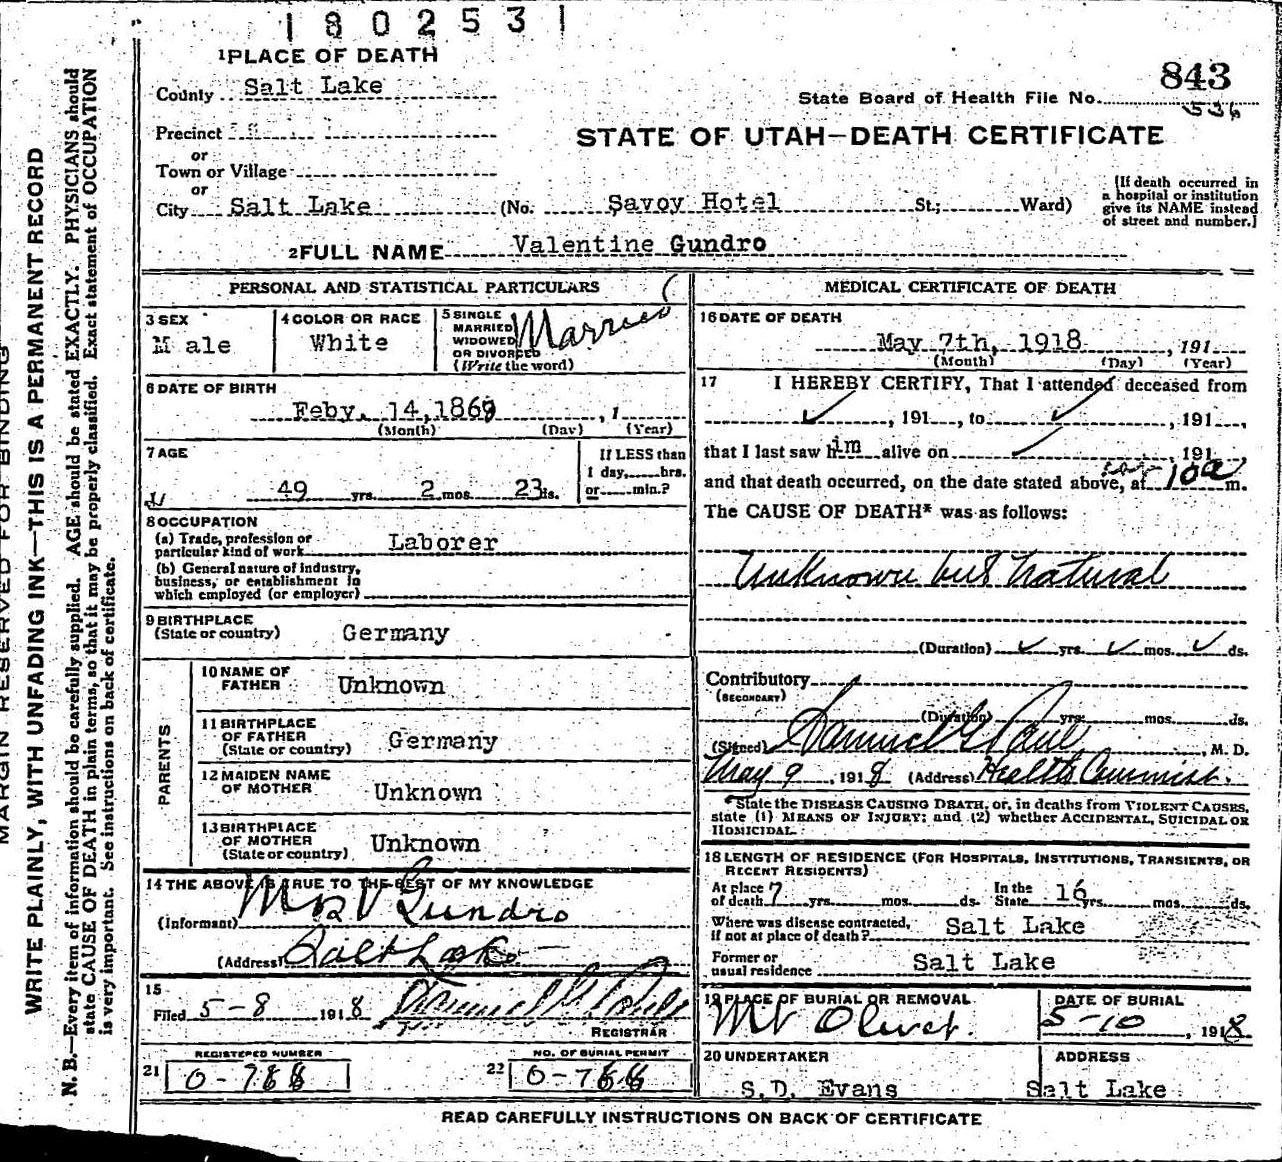 1802531
1 PLACE OF DEATH
County Salt Lake
843
State Board of Health File No.
536
Precinct
or
Town or Village
or
STATE OF UTAH—DEATH CERTIFICATE
City Salt Lake (No. Savoy Hotel St.; Ward)
(If death occurred in
a hospital or institution
give its NAME instead
of street and number.)
2 FULL NAME Valentine Gundro
PERSONAL AND STATISTICAL PARTICULARS
3 SEX
Male
4 COLOR OR RACE
White
5 SINGLE
MARRIED
WIDOWED
OR DIVORCED
(Write the word)
Married
6 DATE OF BIRTH
Feby. 14, 1869, 1
(Month) (Day) (Year)
7 AGE
49 yrs. 2 mos. 23 ds.
If LESS than
1 day, hrs.
or min.?
8 OCCUPATION
(a) Trade, profession or
particular kind of work Laborer
(b) General nature of industry,
business, or establishment in
which employed (or employer)
9 BIRTHPLACE
(State or country) Germany
PARENTS
10 NAME OF
FATHER Unknown
11 BIRTHPLACE
OF FATHER
(State or country) Germany
12 MAIDEN NAME
OF MOTHER Unknown
13 BIRTHPLACE
OF MOTHER
(State or country) Unknown
14 THE ABOVE IS TRUE TO THE BEST OF MY KNOWLEDGE
(Informant) Mrs V Gundro
(Address) Salt Lake
15
Filed 5-8 1918 Samuel G Paul
REGISTRAR
REGISTERED NUMBER
21 0-788
NO. OF BURIAL PERMIT
22 0-788
MEDICAL CERTIFICATE OF DEATH
16 DATE OF DEATH
May 7th, 1918, 191
(Month) (Day) (Year)
17 I HEREBY CERTIFY, That I attended deceased from
✓, 191, to ✓, 191,
that I last saw him alive on ✓, 191,
and that death occurred, on the date stated above, at 10 a m.
The CAUSE OF DEATH* was as follows:
Unknown but Natural
(Duration) ✓ yrs. ✓ mos. ✓ ds.
Contributory
(SECONDARY)
(Duration) yrs. mos. ds.
(Signed) Samuel G Paul, M. D.
May 9, 1918 (Address) Health Commisr.
*State the DISEASE CAUSING DEATH, or, in deaths from VIOLENT CAUSES,
state (1) MEANS OF INJURY; and (2) whether ACCIDENTAL, SUICIDAL OR
HOMICIDAL.
18 LENGTH OF RESIDENCE (FOR HOSPITALS, INSTITUTIONS, TRANSIENTS, OR
RECENT RESIDENTS)
At place
of death 7 yrs. mos. ds.
In the
State 16 yrs. mos. ds.
Where was disease contracted,
if not at place of death? Salt Lake
Former or
usual residence Salt Lake
19 PLACE OF BURIAL OR REMOVAL
Mt Olivet.
DATE OF BURIAL
5-10, 1918
20 UNDERTAKER
S. D. Evans
ADDRESS
Salt Lake
READ CAREFULLY INSTRUCTIONS ON BACK OF CERTIFICATE
MARGIN RESERVED FOR BINDING
WRITE PLAINLY, WITH UNFADING INK—THIS IS A PERMANENT RECORD
N. B.—Every item of information should be carefully supplied. AGE should be stated EXACTLY. PHYSICIANS should
state CAUSE OF DEATH in plain terms, so that it may be properly classified. Exact statement of OCCUPATION
is very important. See instructions on back of certificate.